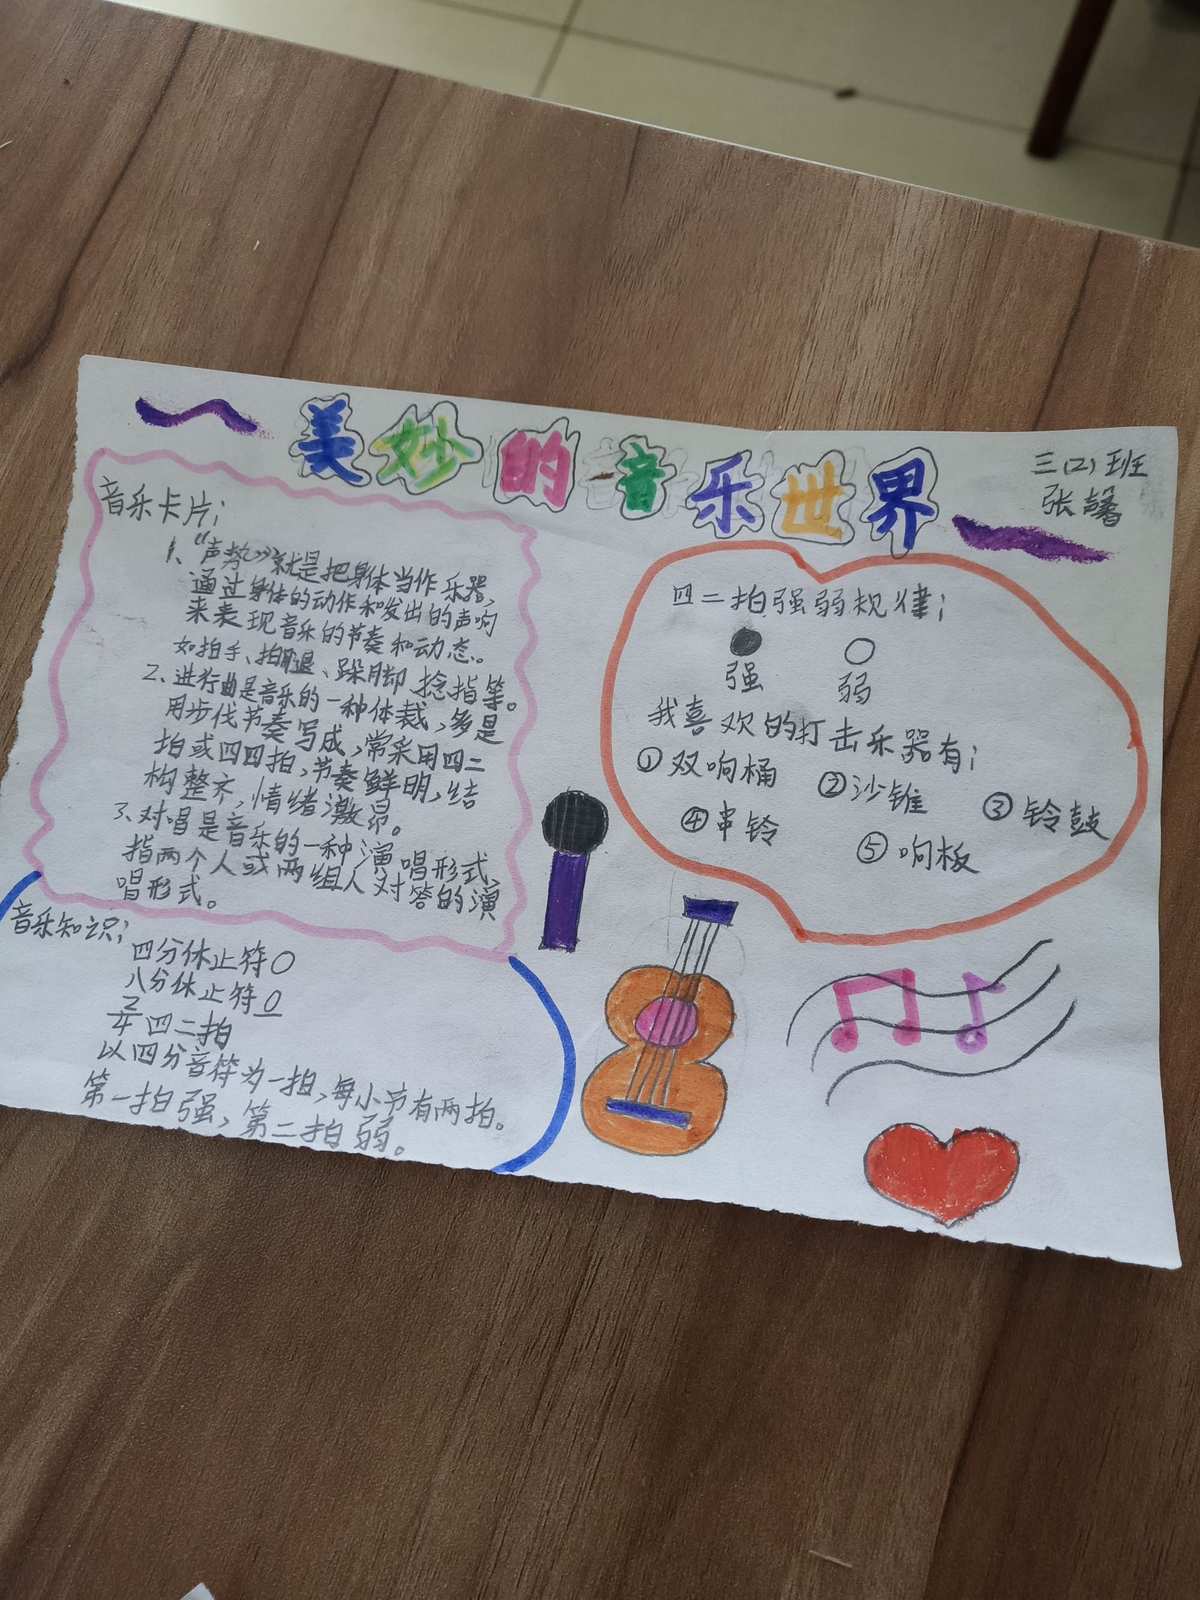 美妙的音乐世界
三(2)班
张馨
音乐卡片；
1、“声势”就是把身体当作乐器，
通过身体的动作和发出的声响
来表现音乐的节奏和动态。
如拍手、拍腿、跺脚 捻指等。
2、进行曲是音乐的一种体裁，多是
用步伐节奏写成，常采用四二
拍或四四拍，节奏鲜明，结
构整齐，情绪激昂。
3、对唱是音乐的一种演唱形式，
指两个人或两组人对答的演
唱形式。
音乐知识；
四分休止符○
八分休止符0
2/4 四二拍
以四分音符为一拍，每小节有两拍。
第一拍强，第二拍弱。
四二拍强弱规律；
● ○
强 弱
我喜欢的打击乐器有；
①双响桶 ②沙锥 ③铃鼓
④串铃 ⑤响板